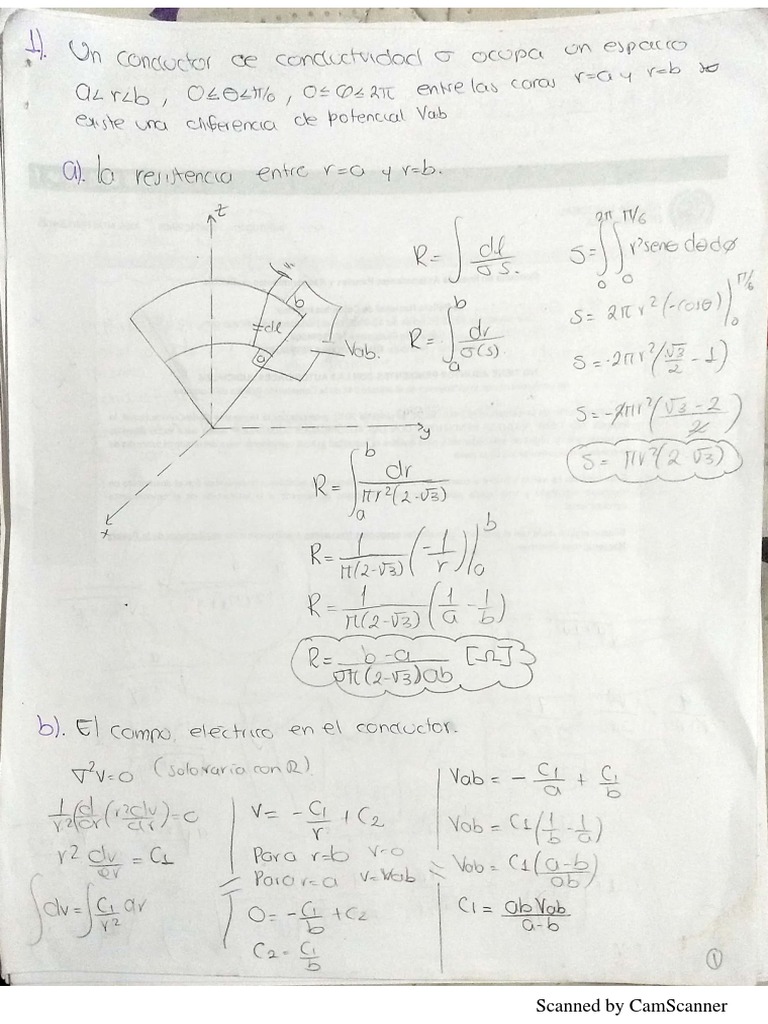 1). Un conductor de conductividad σ ocupa un espacio
a<r<b, 0≤θ≤π/6, 0≤φ≤2π entre las caras r=a y r=b se
existe una diferencia de potencial Vab
a). la resistencia entre r=a y r=b.
z
b
dl
a
Vab.
y
x
R= ∫ dl/σs.
R= ∫_a^b dr/σ(s)
S= ∫_0^2π ∫_0^π/6 r²senθ dθdφ
S= 2πr²(-cosθ)|_0^π/6
S= -2πr²(√3/2 - 1)
S= -2πr²((√3-2)/2)
S= πr²(2 √3)
R= ∫_a^b dr/πr²(2-√3)
R= 1/π(2-√3) (-1/r)|_a^b
R= 1/π(2-√3) (1/a - 1/b)
R= b-a/σπ(2-√3)ab [Ω]
b). El campo eléctrico en el conductor.
∇²V=0 (solo varia con R).
1/r² (d/dr (r²dv/dr)=0
r² dv/dr = C1
∫dv=∫C1/r² dr
V= -C1/r + C2
Para r=b v=0
Para r=a v=Vab
0= -C1/b + C2
C2= C1/b
Vab = - C1/a + C1/b
Vab= C1(1/b - 1/a)
Vab= C1(a-b/ab)
C1 = abVab/a-b
1
Scanned by CamScanner